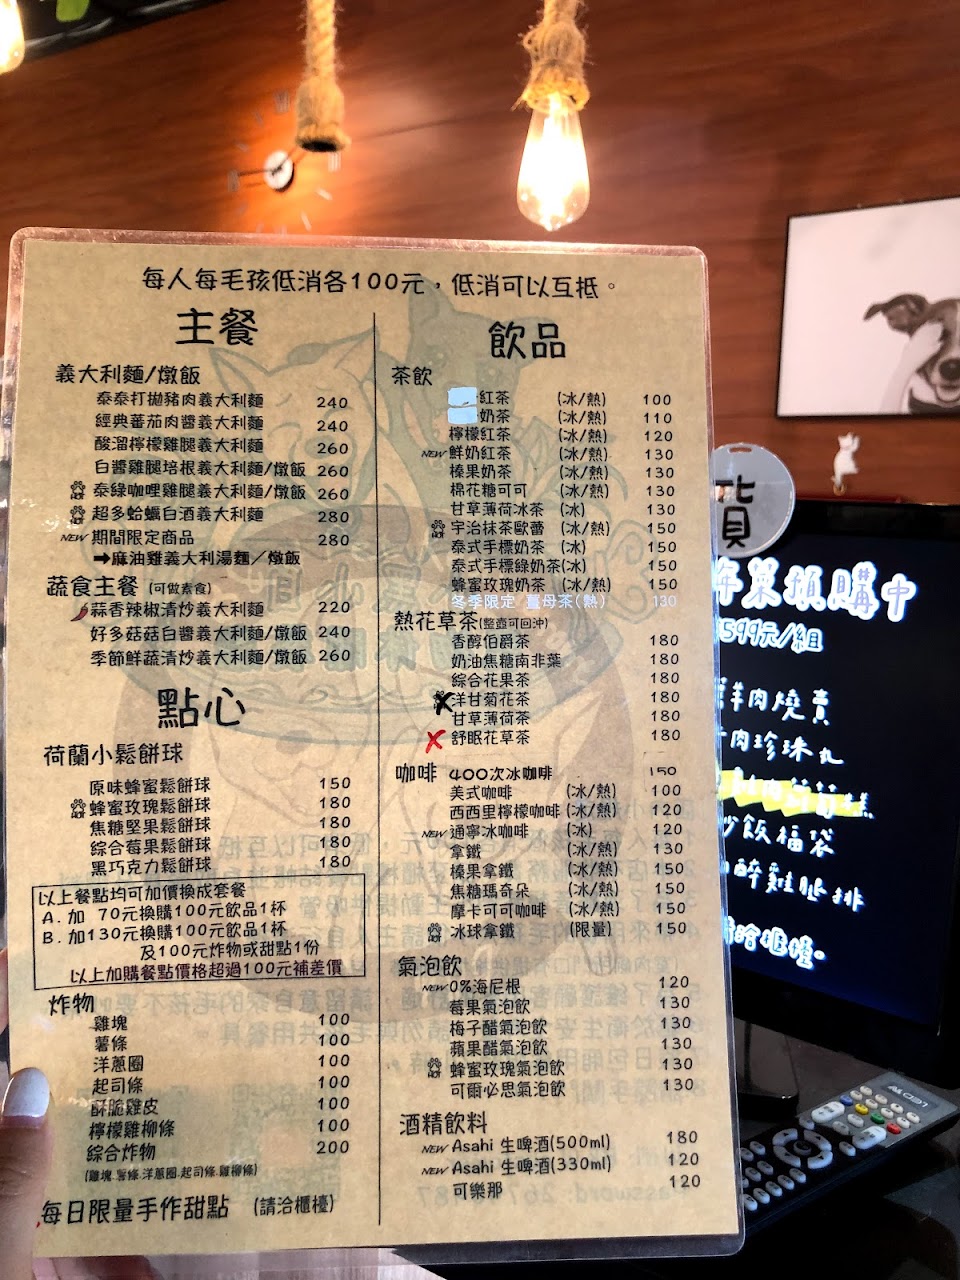 每人每毛孩低消各100元，低消可以互抵。
主餐
義大利麵/燉飯
泰泰打拋豬肉義大利麵 240
經典蕃茄肉醬義大利麵 240
酸溜檸檬雞腿義大利麵 260
白醬雞腿培根義大利麵/燉飯 260
泰綠咖哩雞腿義大利麵/燉飯 260
超多蛤蠣白酒義大利麵 280
NEW 期間限定商品 280
➡麻油雞義大利湯麵／燉飯
蔬食主餐 (可做素食)
蒜香辣椒清炒義大利麵 220
好多菇菇白醬義大利麵/燉飯 240
季節鮮蔬清炒義大利麵/燉飯 260
點心
荷蘭小鬆餅球
原味蜂蜜鬆餅球 150
蜂蜜玫瑰鬆餅球 180
焦糖堅果鬆餅球 180
綜合莓果鬆餅球 180
黑巧克力鬆餅球 180
以上餐點均可加價換成套餐
A. 加 70元換購100元飲品1杯
B. 加130元換購100元飲品1杯
及100元炸物或甜點1份
以上加購餐點價格超過100元補差價
炸物
雞塊 100
薯條 100
洋蔥圈 100
起司條 100
酥脆雞皮 100
檸檬雞柳條 100
綜合炸物 200
(雞塊.薯條.洋蔥圈.起司條.雞柳條)
每日限量手作甜點 (請洽櫃檯)
飲品
茶飲
紅茶 (冰/熱) 100
奶茶 (冰/熱) 110
檸檬紅茶 (冰/熱) 120
NEW 鮮奶紅茶 (冰/熱) 130
榛果奶茶 (冰/熱) 130
棉花糖可可 (冰/熱) 130
甘草薄荷冰茶 (冰) 130
宇治抹茶歐蕾 (冰/熱) 150
泰式手標奶茶 (冰) 150
泰式手標綠奶茶(冰) 150
蜂蜜玫瑰奶茶 (冰/熱) 150
冬季限定 薑母茶(熱) 130
熱花草茶(整壺可回沖)
香醇伯爵茶 180
奶油焦糖南非葉 180
綜合花果茶 180
洋甘菊花茶 180
甘草薄荷茶 180
舒眠花草茶 180
咖啡 400次冰咖啡 150
美式咖啡 (冰/熱) 100
西西里檸檬咖啡 (冰/熱) 120
NEW 通寧冰咖啡 (冰) 120
拿鐵 (冰/熱) 130
榛果拿鐵 (冰/熱) 150
焦糖瑪奇朵 (冰/熱) 150
摩卡可可咖啡 (冰/熱) 150
冰球拿鐵 (限量) 150
氣泡飲
NEW 0%海尼根 120
莓果氣泡飲 130
梅子醋氣泡飲 130
蘋果醋氣泡飲 130
蜂蜜玫瑰氣泡飲 130
可爾必思氣泡飲 130
酒精飲料
NEW Asahi 生啤酒(500ml) 180
NEW Asahi 生啤酒(330ml) 120
可樂那 120
年菜預購中
599元/組
羊肉燒賣
肉珍珠丸
炒飯福袋
醉雞腿排
請洽櫃檯。